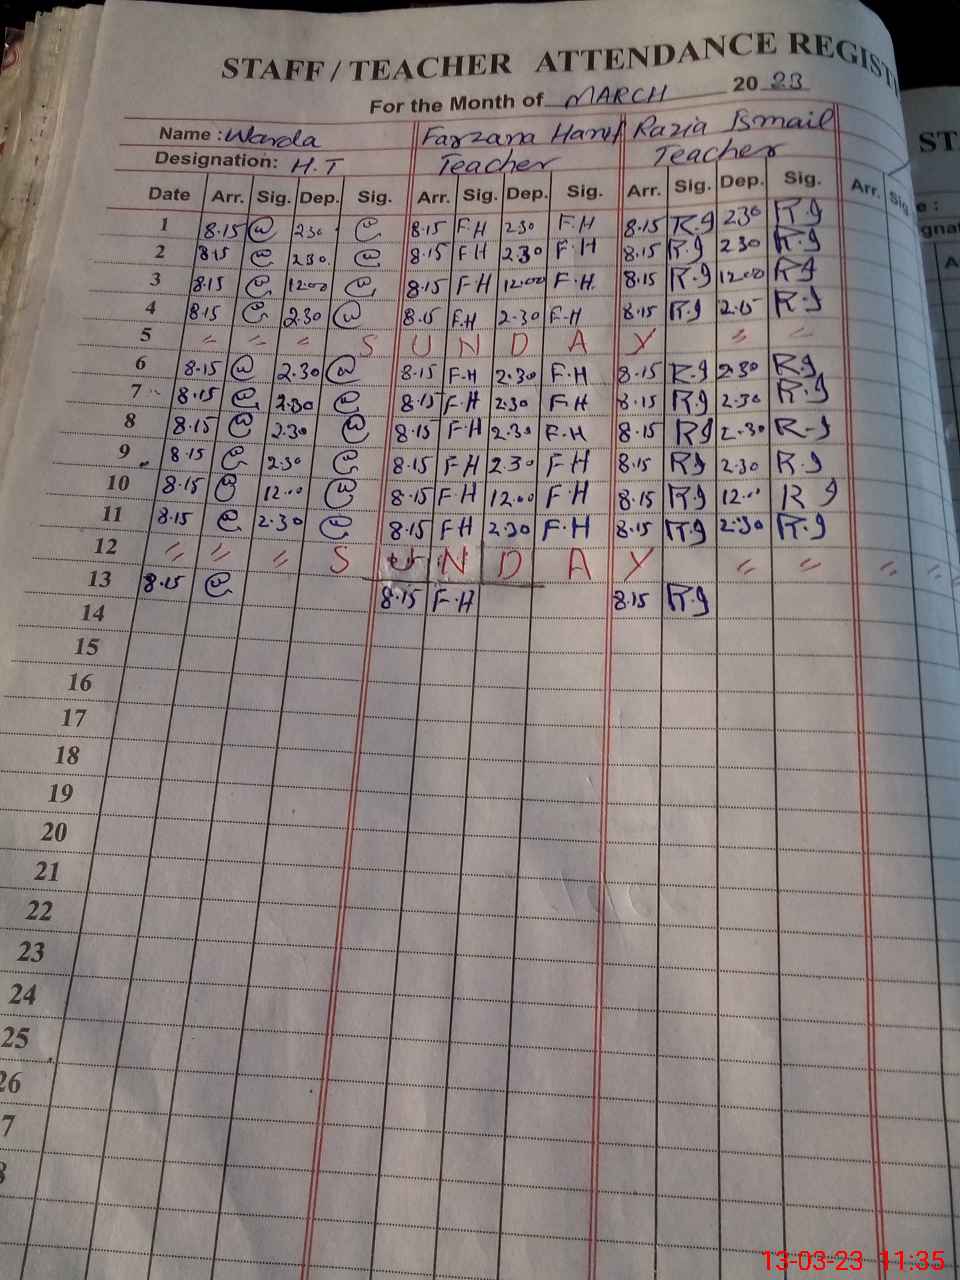 STAFF / TEACHER ATTENDANCE REGIST
For the Month of MARCH 2023
Name : Warda Farzana Hanif Razia Ismail
Designation: H.T Teacher Teacher
Date Arr. Sig. Dep. Sig. Arr. Sig. Dep. Sig. Arr. Sig. Dep. Sig. Arr. Sig
1 8.15 @ 230 @ 8.15 F.H 230 F.H 8.15 R.I 230 R.I
2 8.15 @ 230. @ 8.15 F.H 2.30 F.H 8.15 R.I 230 R.I
3 8.15 @ 12.00 @ 8.15 F.H 12.00 F.H. 8.15 R.I 12.00 R.I
4 8.15 @ 2.30 @ 8.15 F.H 2.30 F.H 8.15 R.I 2.15 R.I
5 = = = S U N D A Y = =
6 8.15 @ 2.30 @ 8.15 F.H 2.30 F.H 8.15 R.I 2.30 R.I
7 8.15 @ 2.30 @ 8.15 F.H 2.30 F.H 8.15 R.I 2.30 R.I
8 8.15 @ 2.30 @ 8.15 F.H 2.30 F.H 8.15 R.I 2.30 R.I
9 8.15 @ 2.30 @ 8.15 F.H 2.30 F.H 8.15 R.I 2.30 R.I
10 8.15 @ 12.00 @ 8.15 F.H 12.00 F.H 8.15 R.I 12.00 R I
11 8.15 @ 2.30 @ 8.15 F.H 2.30 F.H 8.15 R.I 2.30 R.I
12 = = = S U N D A Y = = = =
13 8.15 @ 8.15 F.H 8.15 R.I
14
15
16
17
18
19
20
21
22
23
24
25
26
7
8
ST
e :
gnat
A
13-03-23 11:35